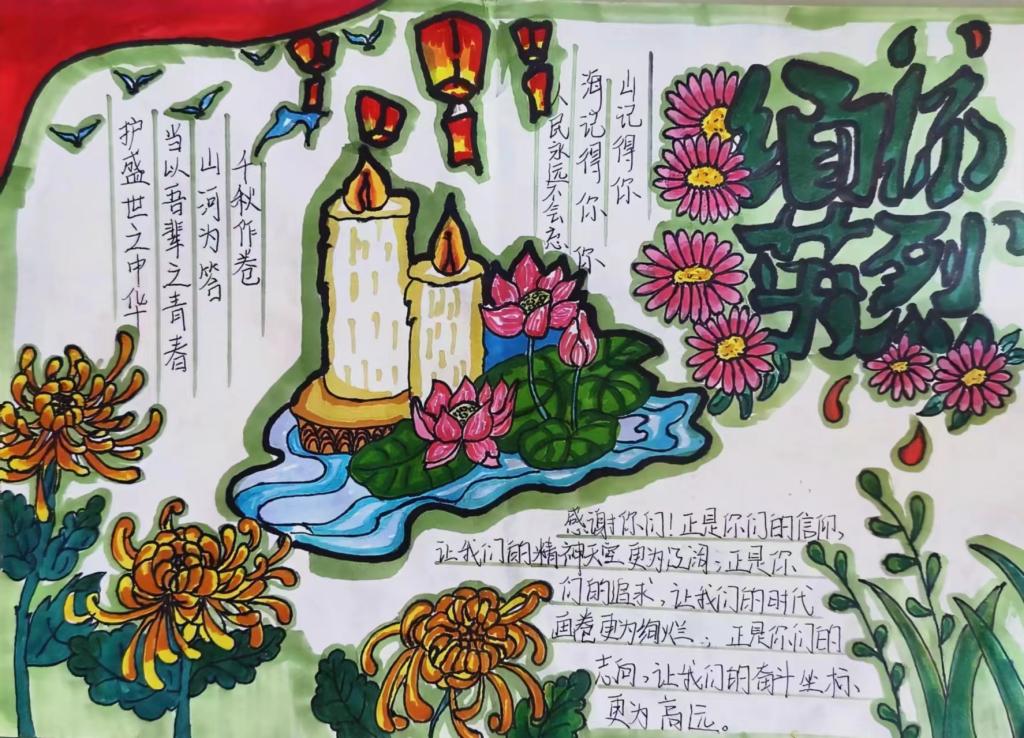 缅怀
英烈
山记得你
海记得你 你
人民永远不会忘
千秋作卷
山河为答
当以吾辈之青春
护盛世之中华
感谢你们!正是你们的信仰,
让我们的精神天空更为辽阔;正是你
们的追求,让我们的时代
画卷更为绚烂;正是你们的
志向,让我们的奋斗坐标
更为高远。